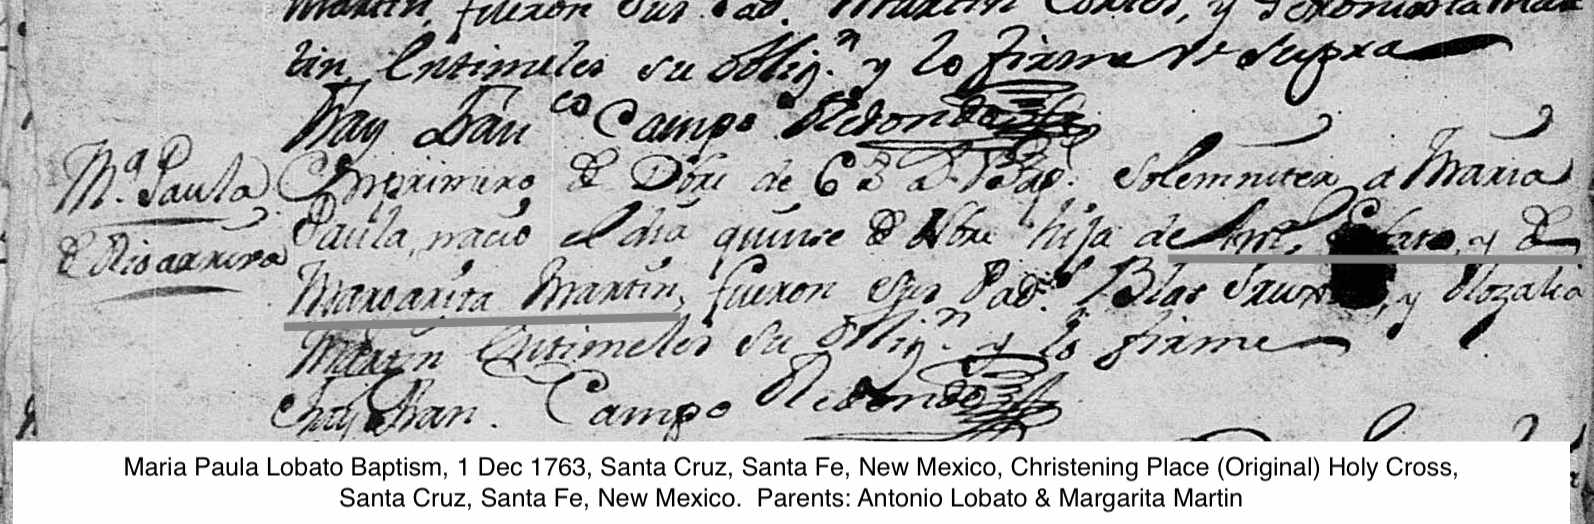 Martin, fueron sus Pad.ˢ Martin Cortes, y Geronima Mar
tin, Intimeles su oblig.ⁿ y lo firme Vt Supra
Fray Fran.ᶜᵒ Campo Redondo
M.ᵃ Paula
de Rio arriva
En primero de Dbre de 63 a. Bap. solemnitèr a Maria
Paula, nacio el dia quinse de Nbre hija de y de
Margarita Martin, fueron sus Pad.ˢ Blas y Rozalia
Martin Intimeles su oblig.ⁿ y lo firme
Fray Fran. Campo Redondo
Maria Paula Lobato Baptism, 1 Dec 1763, Santa Cruz, Santa Fe, New Mexico, Christening Place (Original) Holy Cross,
Santa Cruz, Santa Fe, New Mexico. Parents: Antonio Lobato & Margarita Martin